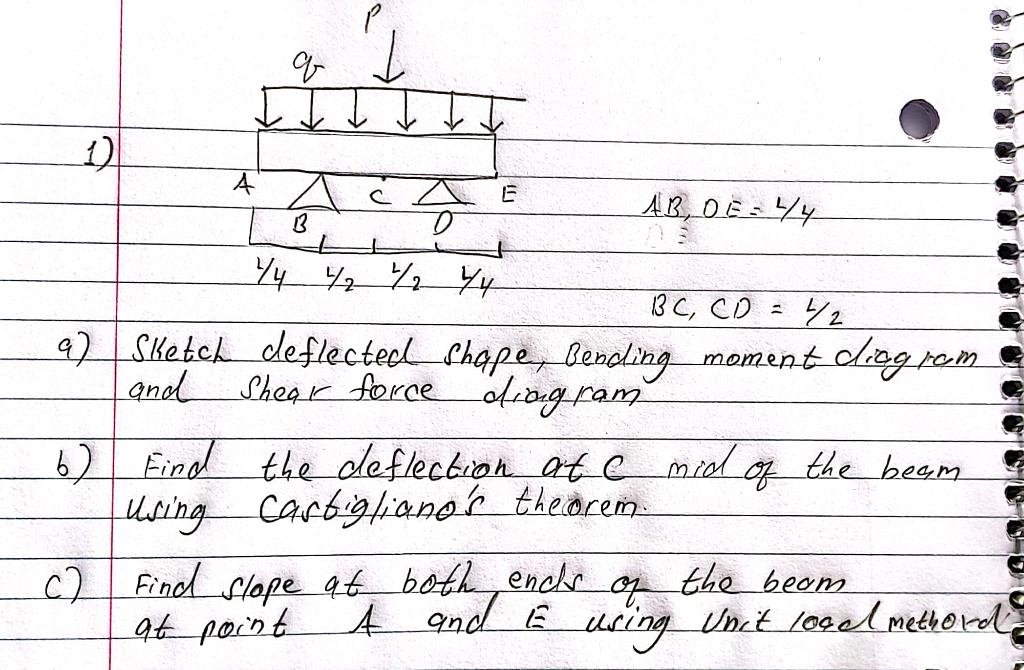 P
q
1)
A C E
B D
AB, DE = L/4
L/4 L/2 L/2 L/4
BC, CD = L/2
a) Sketch deflected shape, Bending moment diagram
and Shear force diagram
b) Find the deflection at C mid of the beam
Using Castigliano's theorem.
c) Find slope at both ends of the beam
at point A and E using Unit load methord